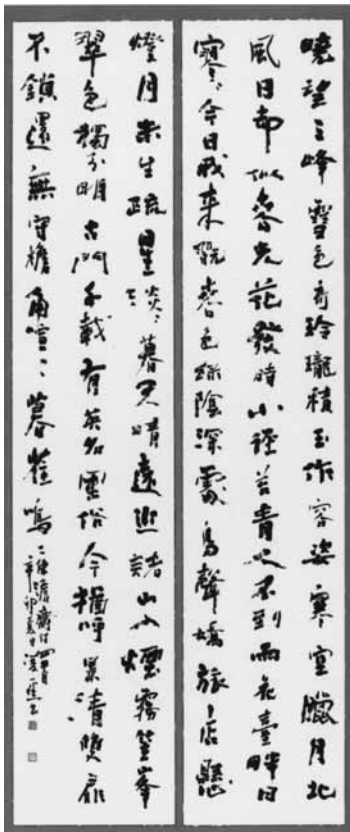 曉望三峰雪色奇玲瓏積玉作容姿寒空臘月北
風日却似春光花發時小徑苔青人不到雨花臺畔日
寒々今日我来既春色綠陰深處鳥聲嬌旅店懸
燈月未生疏星三々暮天晴遠近諸山入煙霧笠峯
翠色獨分明古門千載有英名俗今猶呼清雙扉
不鎖還無守檐角喧々暮雀鳴
四首
辛卯夏日